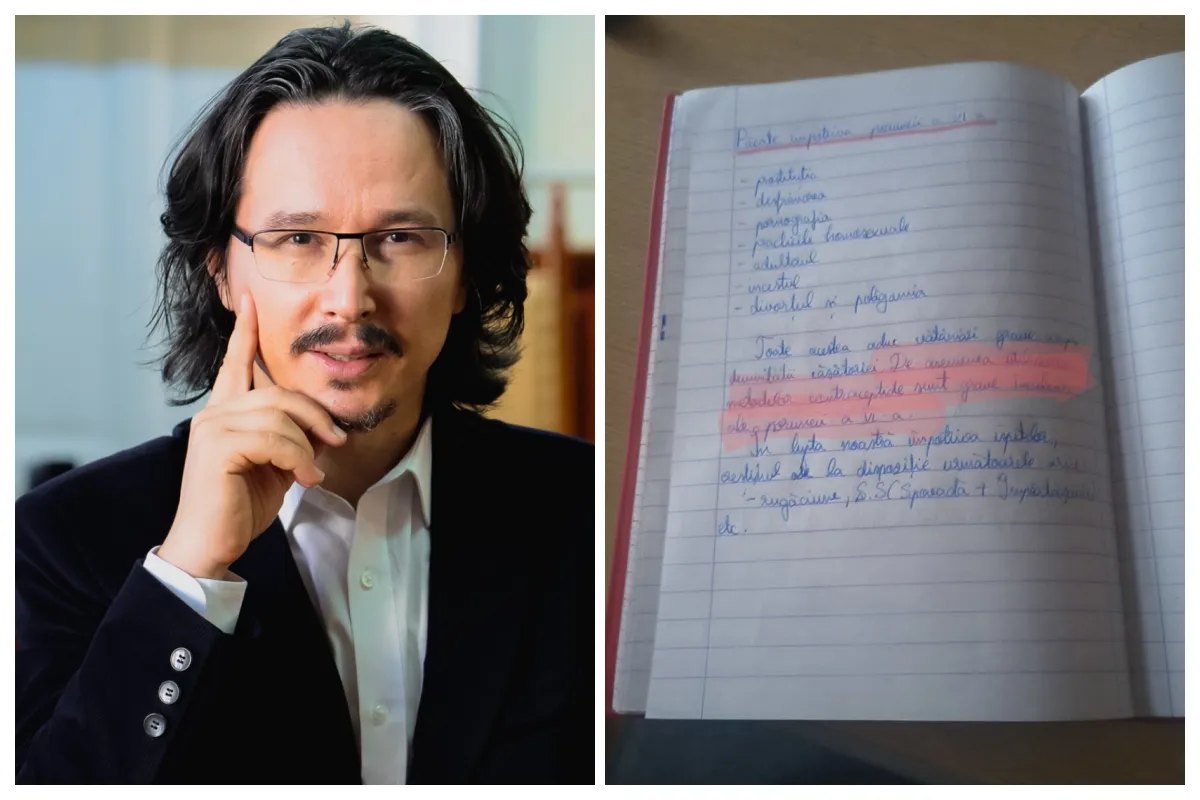 Păcate împotriva poruncii a VI-a
- prostituția
- desfrânarea
- pornografia
- practicile homosexuale
- adulterul
- incestul
- divorțul și poligamia
Toate acestea aduc vătămări grave
demnității căsătoriei De asemenea utilizarea
metodelor contraceptide sunt grave încălcări
ale poruncii a VI-a.
În lupta noastră împotriva ispitelor,
creștinul are la dispoziție următoarele
- rugăciune, S.S (Spovada + Împărtășania
etc.